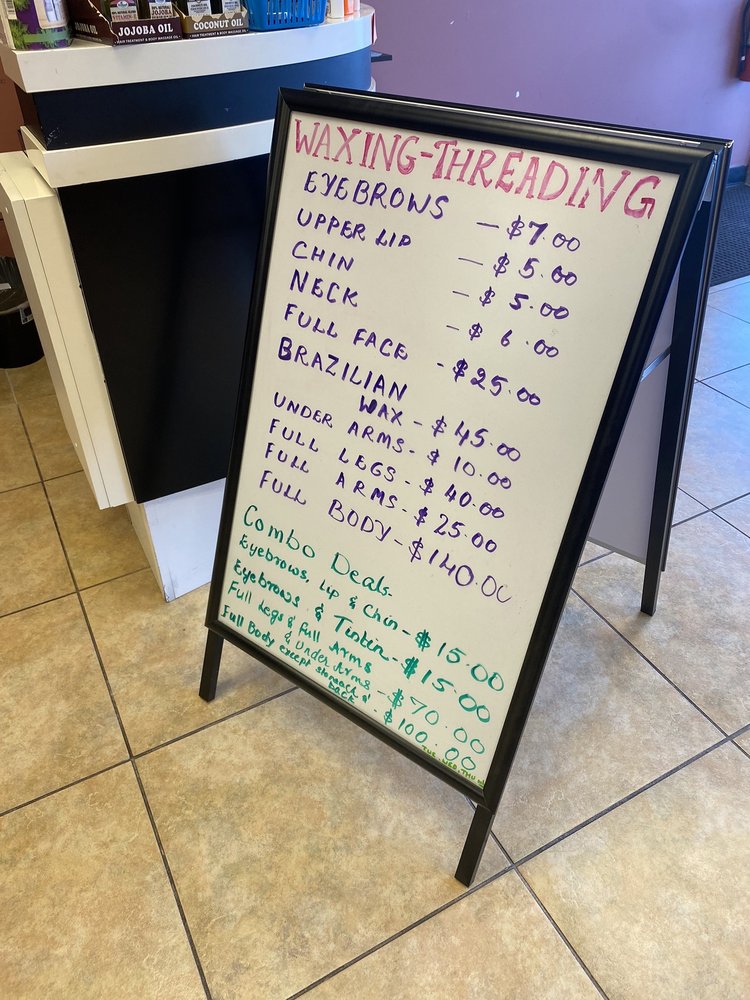 JOJOBA OIL
HAIR TREATMENT & BODY MASSAGE OIL
COCONUT OIL
HAIR TREATMENT & BODY MASSAGE OIL
WAXING-THREADING
EYEBROWS - $7.00
UPPER LIP - $5.00
CHIN - $5.00
NECK - $6.00
FULL FACE - $25.00
BRAZILIAN
WAX - $45.00
UNDER ARMS - $10.00
FULL LEGS - $40.00
FULL ARMS - $25.00
FULL BODY - $140.00
Combo Deals
Eyebrows, Lip & Chin - $15.00
Eyebrows & Tintin - $15.00
Full Legs & Full Arms
& Under Arms - $70.00
Full Body except stomach &
BACK - $100.00
TUE, WED, THU